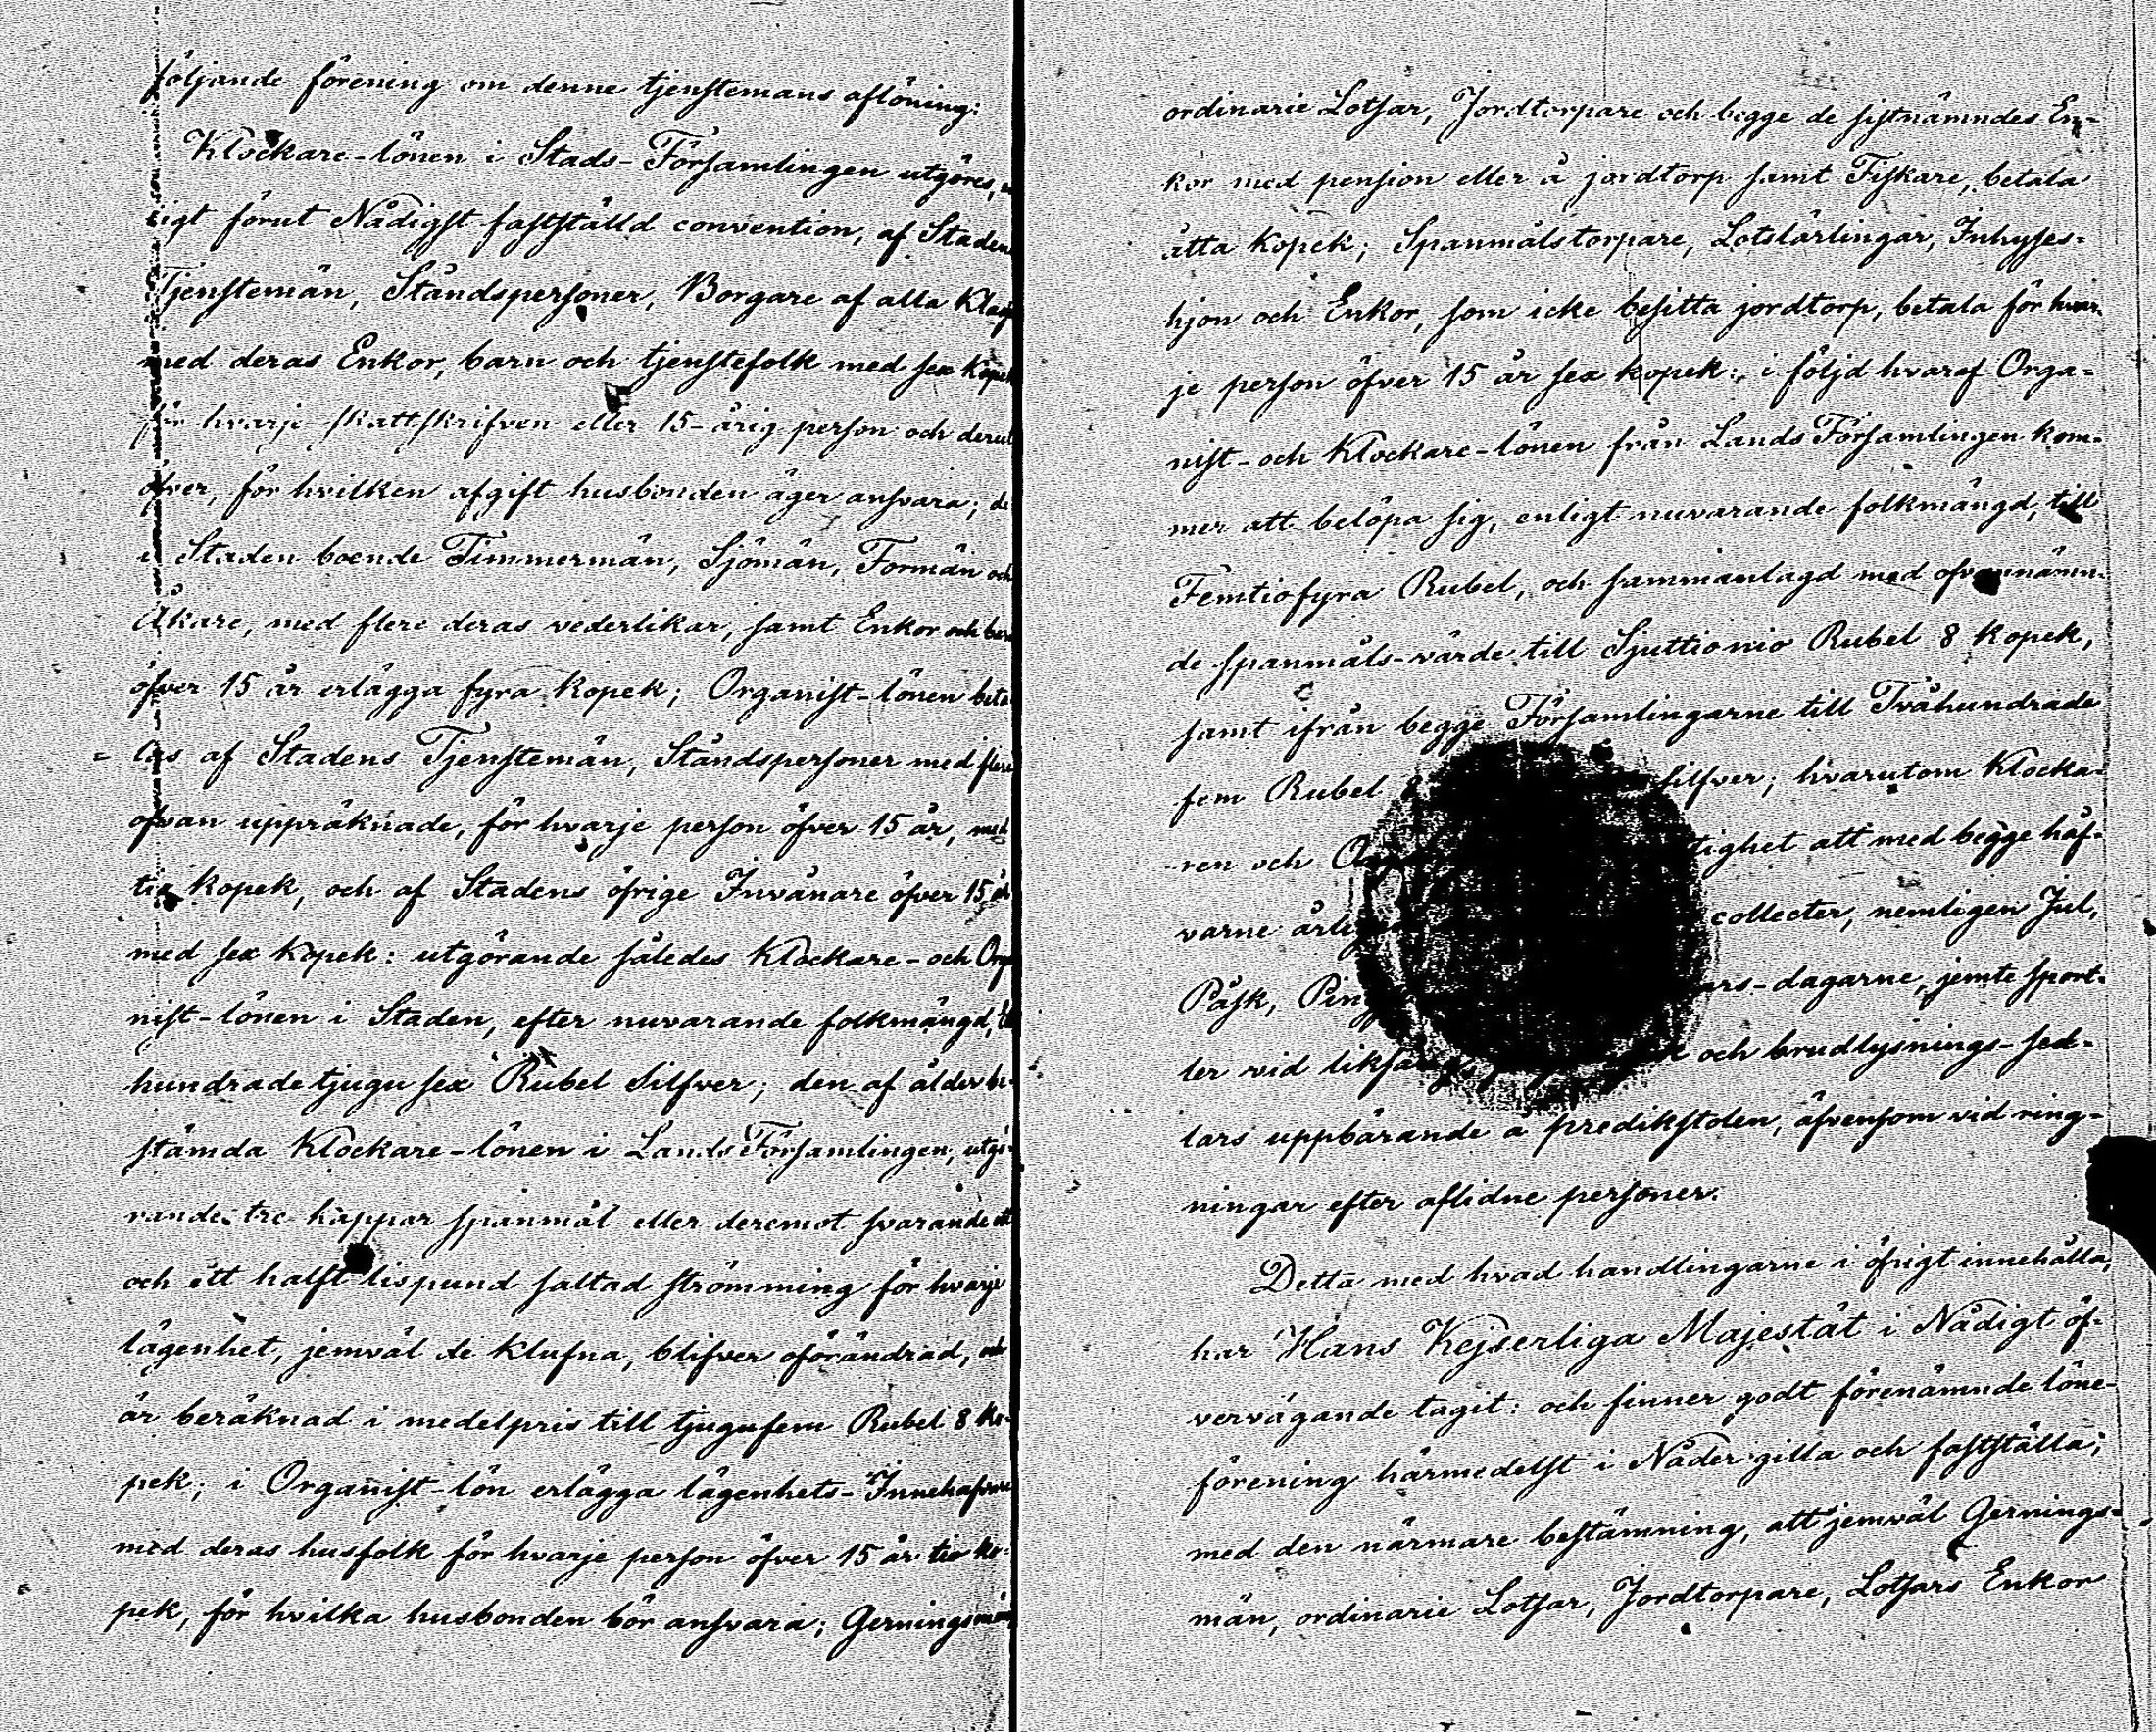 följande förening om denne tjenstemans aflöning:
Klockare-lönen i Stads-Församlingen utgöres,
ligt förut Nådigst fastställd convention, af Stadens
Tjenstemän, Ståndspersoner, Borgare af alla
med deras Enkor, barn och tjenstefolk med sex Kopek
för hvarje skattskrifven eller 15-årig person och
öfver, för hvilken afgift husbonden äger ansvara; de
i Staden boende Timmermän, Sjömän, Formän och
Åkare, med flere deras vederlikar, samt Enkor och
öfver 15 år erlägga fyra kopek; Organist-lönen beta
las af Stadens Tjenstemän, Ståndspersoner med flere
ofvan uppräknade, för hvarje person öfver 15 år, med
tio kopek, och af Stadens öfrige Invånare öfver 15 år
med sex kopek: utgörande således Klockare- och Orga
nist-lönen i Staden, efter nuvarande folkmängd,
hundrade tjugu sex Rubel Silfver; den af ålder be-
stämda Klockare-lönen i Lands Församlingen, utgö-
rande tre kappar spanmål eller deremot svarande
och ett halft lispund saltad strömming för hvarje
lägenhet, jemväl de klufna, blifver oförändrad, och
är beräknad i medelpris till tjugufem Rubel 8 Ko-
pek; i Organist-lön erlägga lägenhets-Innehafvare
med deras husfolk för hvarje person öfver 15 år tio ko-
pek, för hvilka husbonden bör ansvara; Gerningsmän
ordinarie Lotsar, Jordtorpare och begge de sistnämndes En-
kor med pension eller å jordtorp samt Fiskare, betala
åtta kopek; Spanmålstorpare, Lotslärlingar, Inhyses-
hjon och Enkor, som icke besitta jordtorp, betala för hvar-
je person öfver 15 år sex kopek: i följd hvaraf Orga-
nist- och Klockare-lönen från Lands Församlingen kom-
mer att belöpa sig, enligt nuvarande folkmängd, till
Femtiofyra Rubel, och sammanlagd med ofvannämn-
de spanmåls-värde till Sjuttionio Rubel 8 kopek,
samt ifrån begge Församlingarne till Tvåhundrade
fem Rubel silfver; hvarutom Klocka-
ren och att med begge häf-
varne collecter, nemligen Jul,
Påsk, -dagarne, jemte sport-
ler vid och brudlysnings-sed-
lars uppbärande å predikstolen, äfvensom vid ring-
ningar efter aflidne personer.
Detta med hvad handlingarne i öfrigt innehålla,
har Hans Kejserliga Majestät i Nådigt öf-
vervägande tagit: och finner godt förenämnde löne-
förening härmedelst i Nåder gilla och fastställa;
med den närmare bestämning, att jemväl Gernings-
män, ordinarie Lotsar, Jordtorpare, Lotsars Enkor